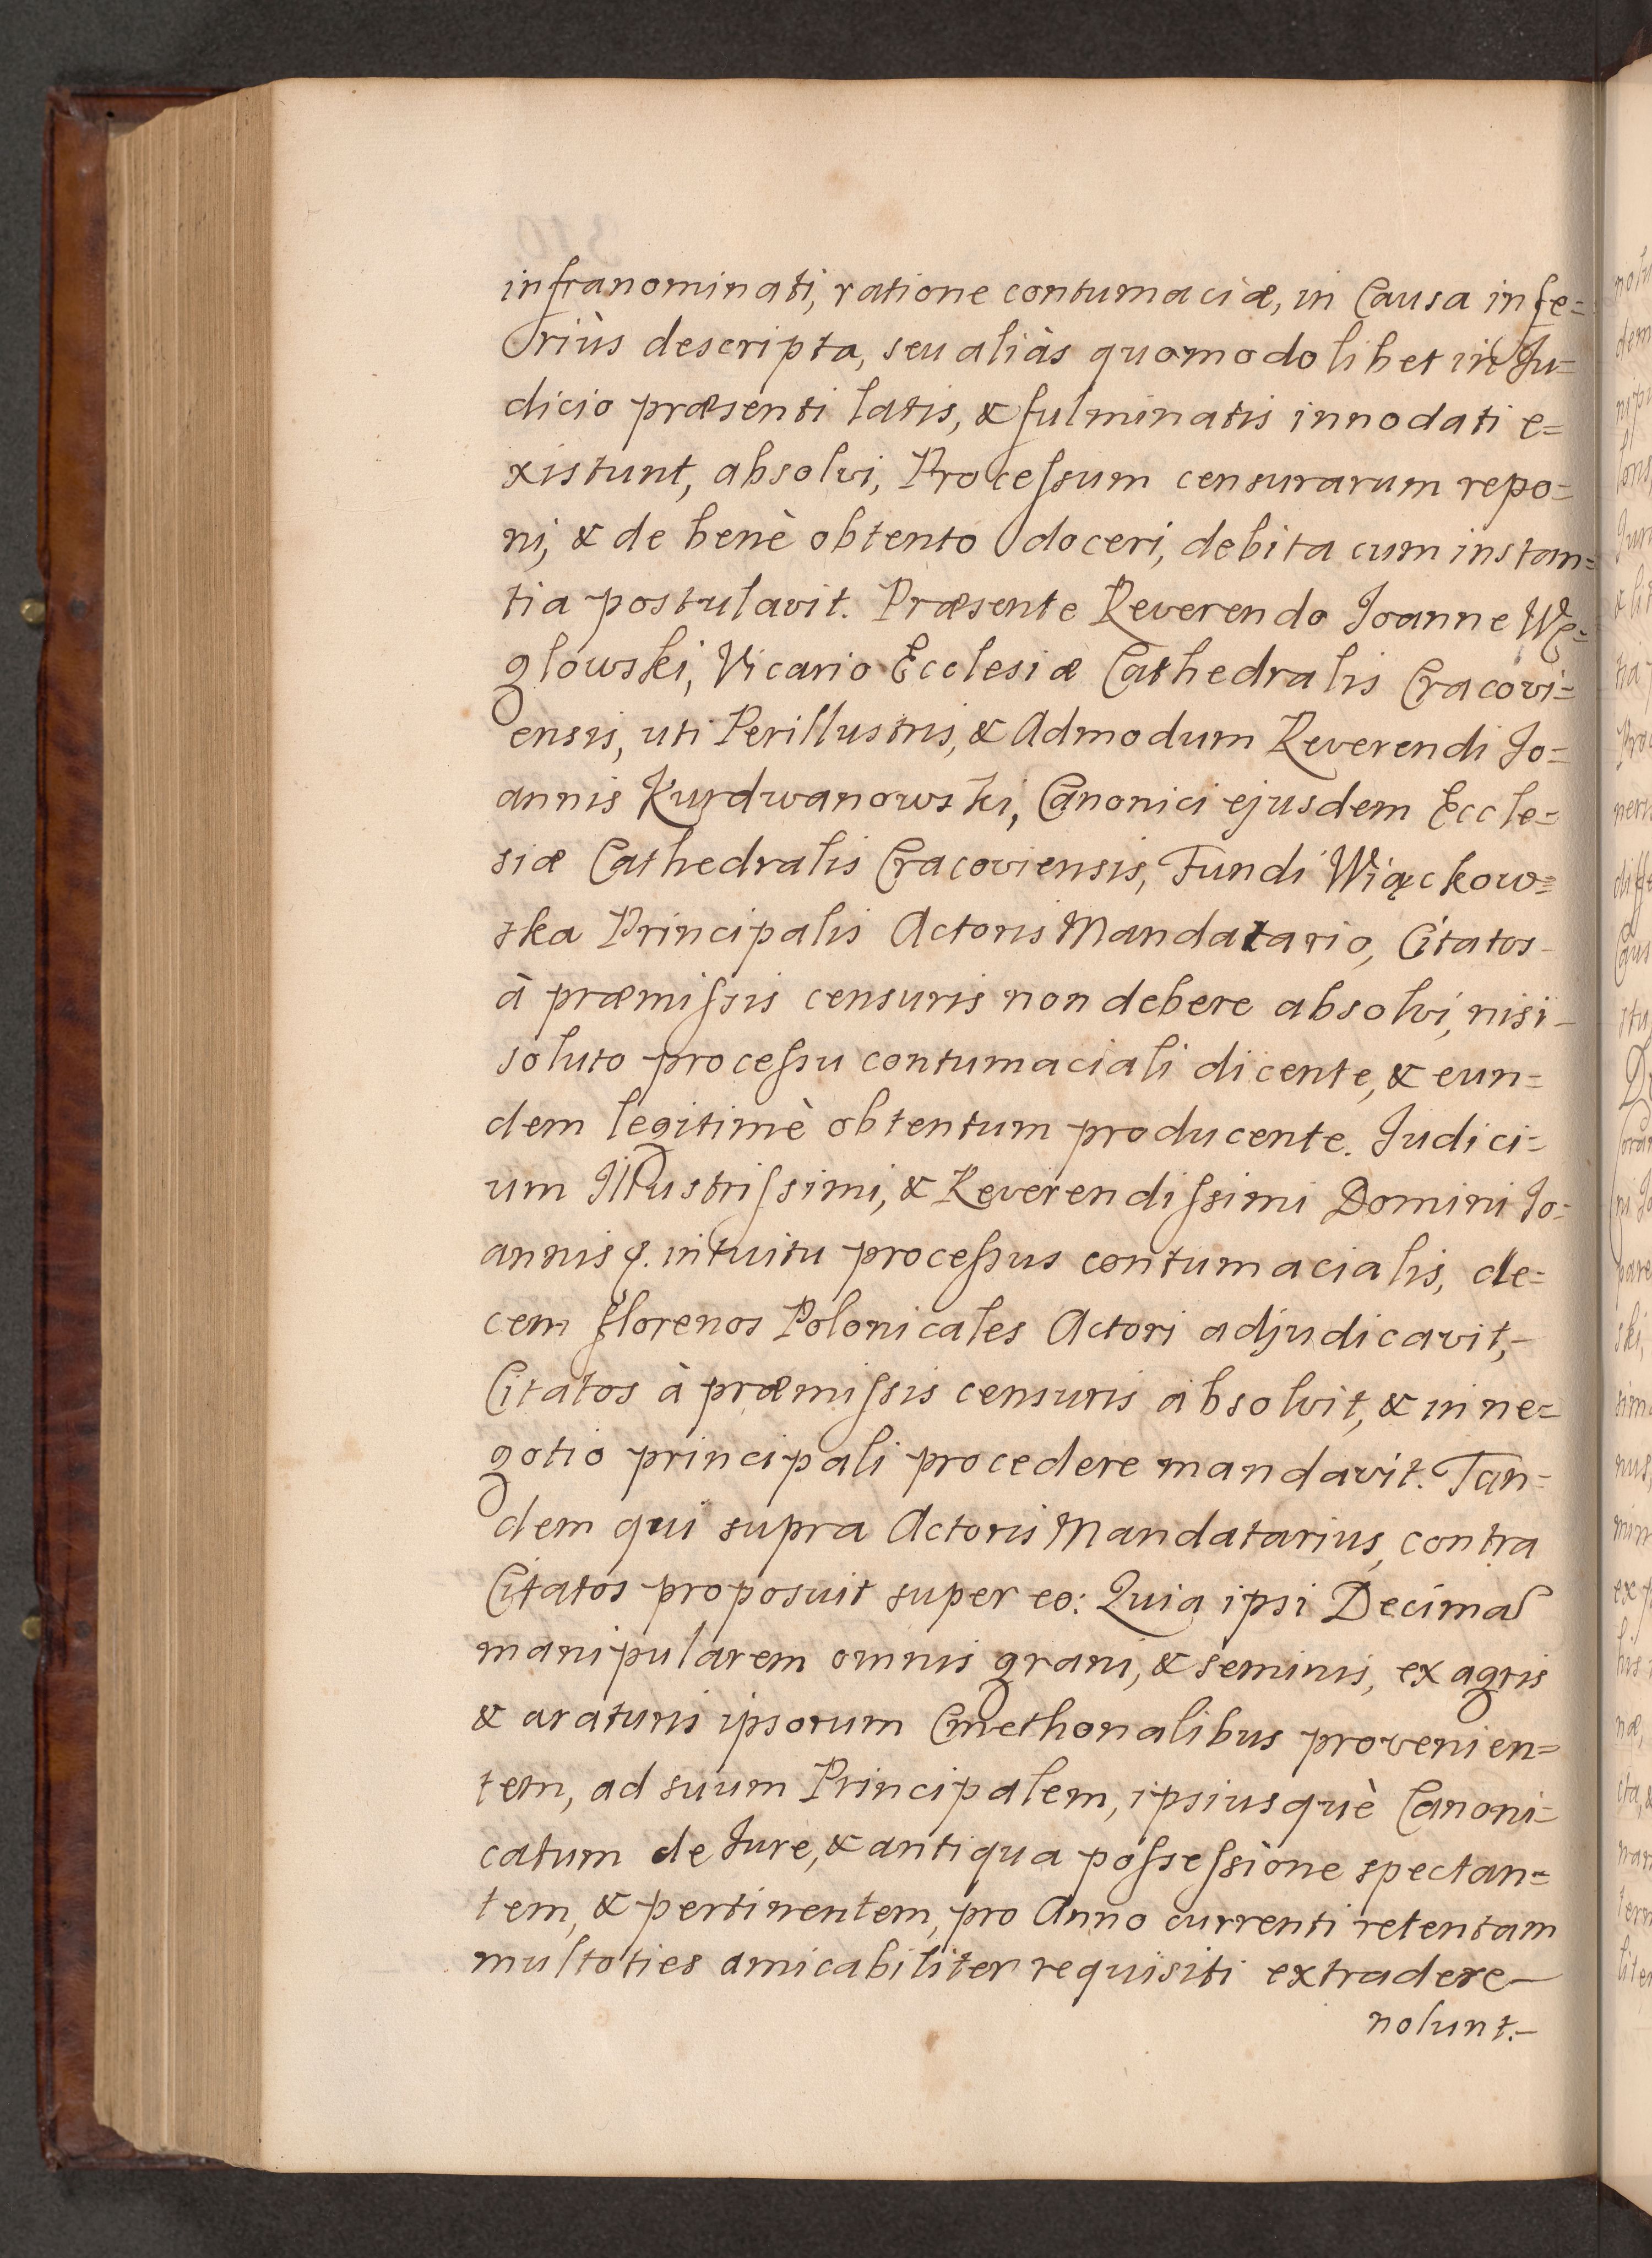 infranominati, ratione contumaciæ, in Causa infe=
riùs descripta, seu aliàs quomodolibet in Ju=
dicio præsenti latis, & fulminatis innodati e=
xistunt, absolvi, Processum censurarum repo=
ni, & de benè obtento doceri, debita cum instan=
tia postulavit. Præsente Reverendo Joanne Wę=
glowski, Vicario Ecclesiæ Cathedralis Cracovi=
ensis, uti Perillustris, & Admodum Reverendi Jo=
annis Kurdwanowski, Canonici ejusdem Eccle=
siæ Cathedralis Cracoviensis, Fundi Wiąckow=
ska Principalis Actoris Mandatario, Citatos
à præmissis censuris non debere absolvi, nisi
soluto processu contumaciali dicente, & eun=
dem legitimè obtentum producente. Judici=
um Illustrissimi, & Reverendissimi Domini Jo=
annis &. intuitu processus contumacialis, de=
cem florenos Polonicales Actori adjudicavit,
Citatos à præmissis censuris absolvit, & in ne=
gotio principali procedere mandavit. Tan=
dem qui supra Actoris Mandatarius, contra
Citatos proposuit super eo: Quia ipsi Decimas
manipularem omnis grani, & seminis, ex agris
& araturis ipsorum Cmethonalibus provenien=
tem, ad suum Principalem, ipsiusquè Canoni=
catum de Jure, & antiqua possessione spectan=
tem, & pertinentem, pro Anno currenti retentam
multoties amicabiliter requisiti extradere
nolunt.